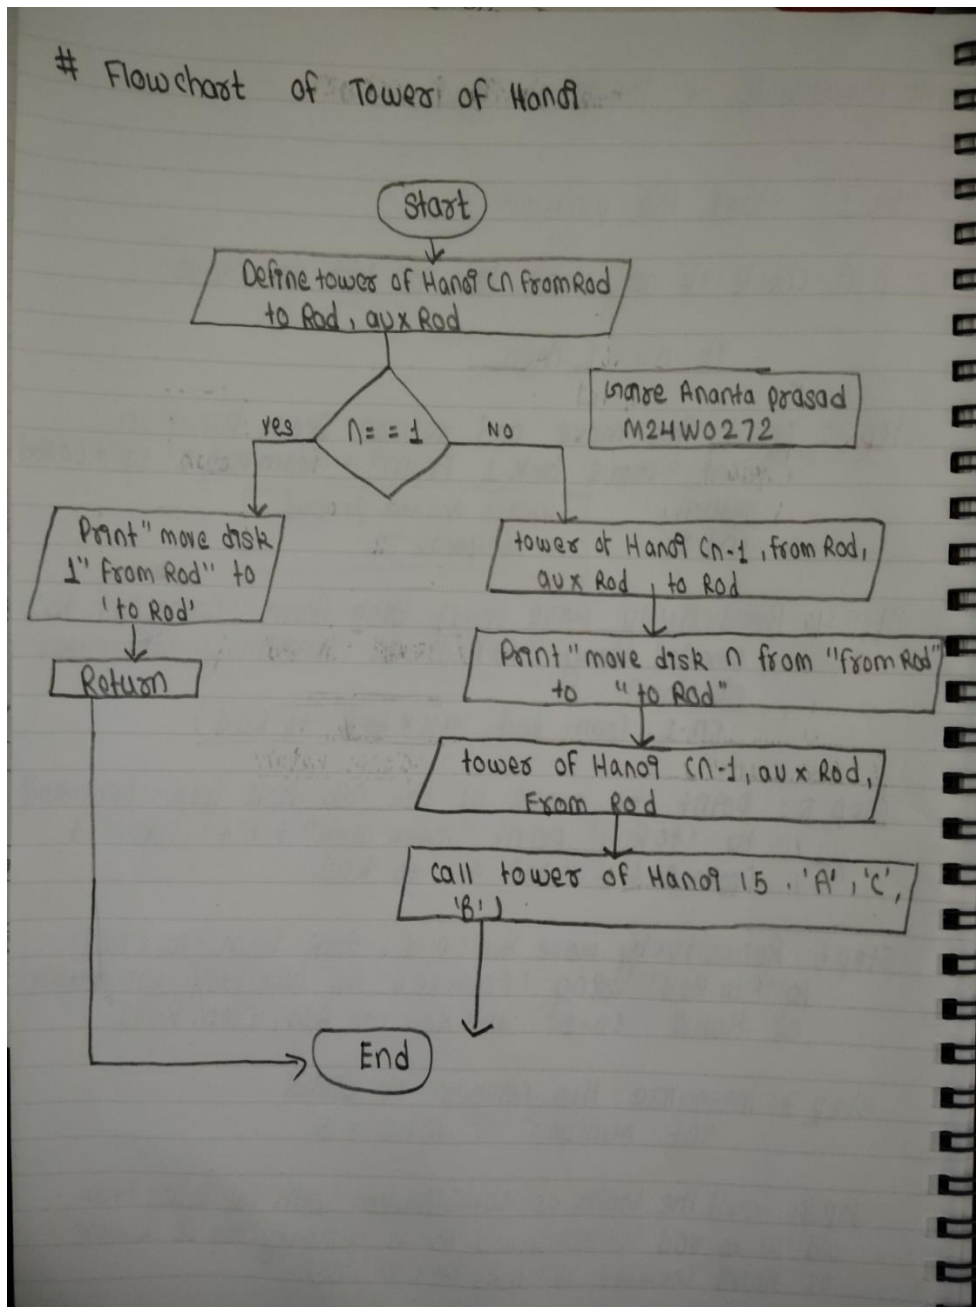 # Flowchart of Tower of Hanoi
Start
Define tower of Hanoi (n from Rod
to Rod, aux Rod
n = = 1
yes
NO
Ananta prasad
M24W0272
Print "move disk
1" from Rod" to
'to Rod'
Return
tower of Hanoi (n-1, from Rod,
aux Rod, to Rod
Print "move disk n from "from Rod"
to "to Rod"
tower of Hanoi (n-1, aux Rod,
From Rod
call tower of Hanoi 15, 'A', 'C',
'B')
End